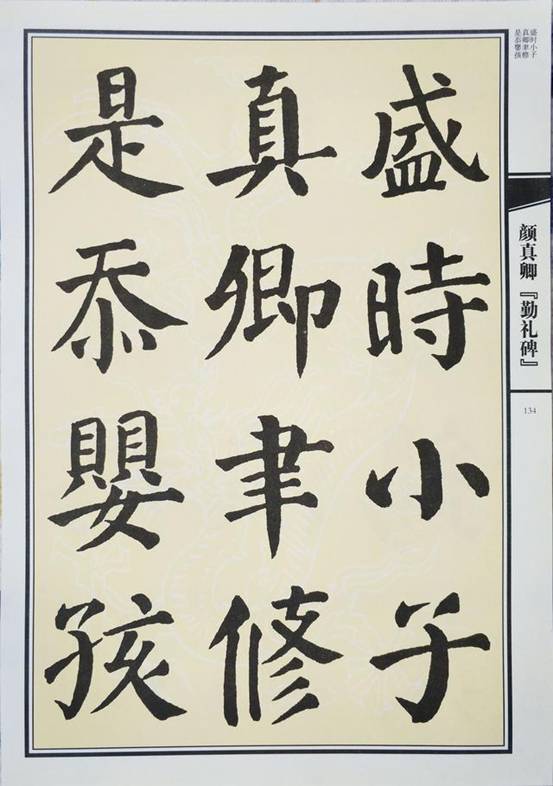 盛時小子
真卿聿修
是忝嬰孩
盛时小子
真卿聿修
是忝婴孩
颜真卿『勤礼碑』
134